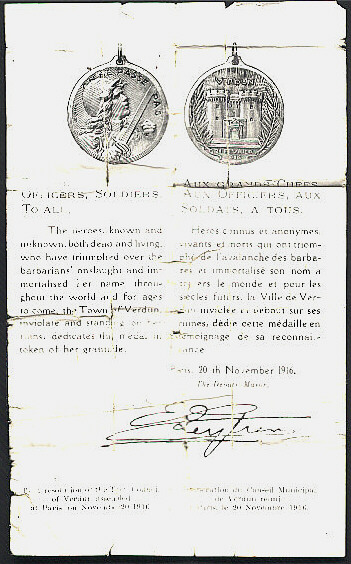 ON NE PASSE PAS
VERDUN
OFFICERS, SOLDIERS
TO ALL,
The heroes, known and
unknown, both dead and living,
who have triumphed over the
barbarians' onslaught and im-
mortalised her name throu-
ghout the world and for ages
to come, the Town of Verdun,
inviolate and standing on her
ruins, dedicates this medal in
token of her gratitude.
AUX GRANDS CHEFS,
AUX OFFICIERS, AUX
SOLDATS, A TOUS,
Héros connus et anonymes,
vivants et morts qui ont triom-
phé de l'avalanche des barba-
res et immortalisé son nom à
travers le monde et pour les
siècles futurs, la Ville de Ver-
dun inviolée et debout sur ses
ruines, dédie cette médaille en
témoignage de sa reconnais-
sance
Paris, 20 th November 1916.
The Deputy Mayor,
of Verdun assembled
at Paris on November 20 1916
Délibération du Conseil Municipal
de Verdun réuni
Paris, le 20 Novembre 1916.